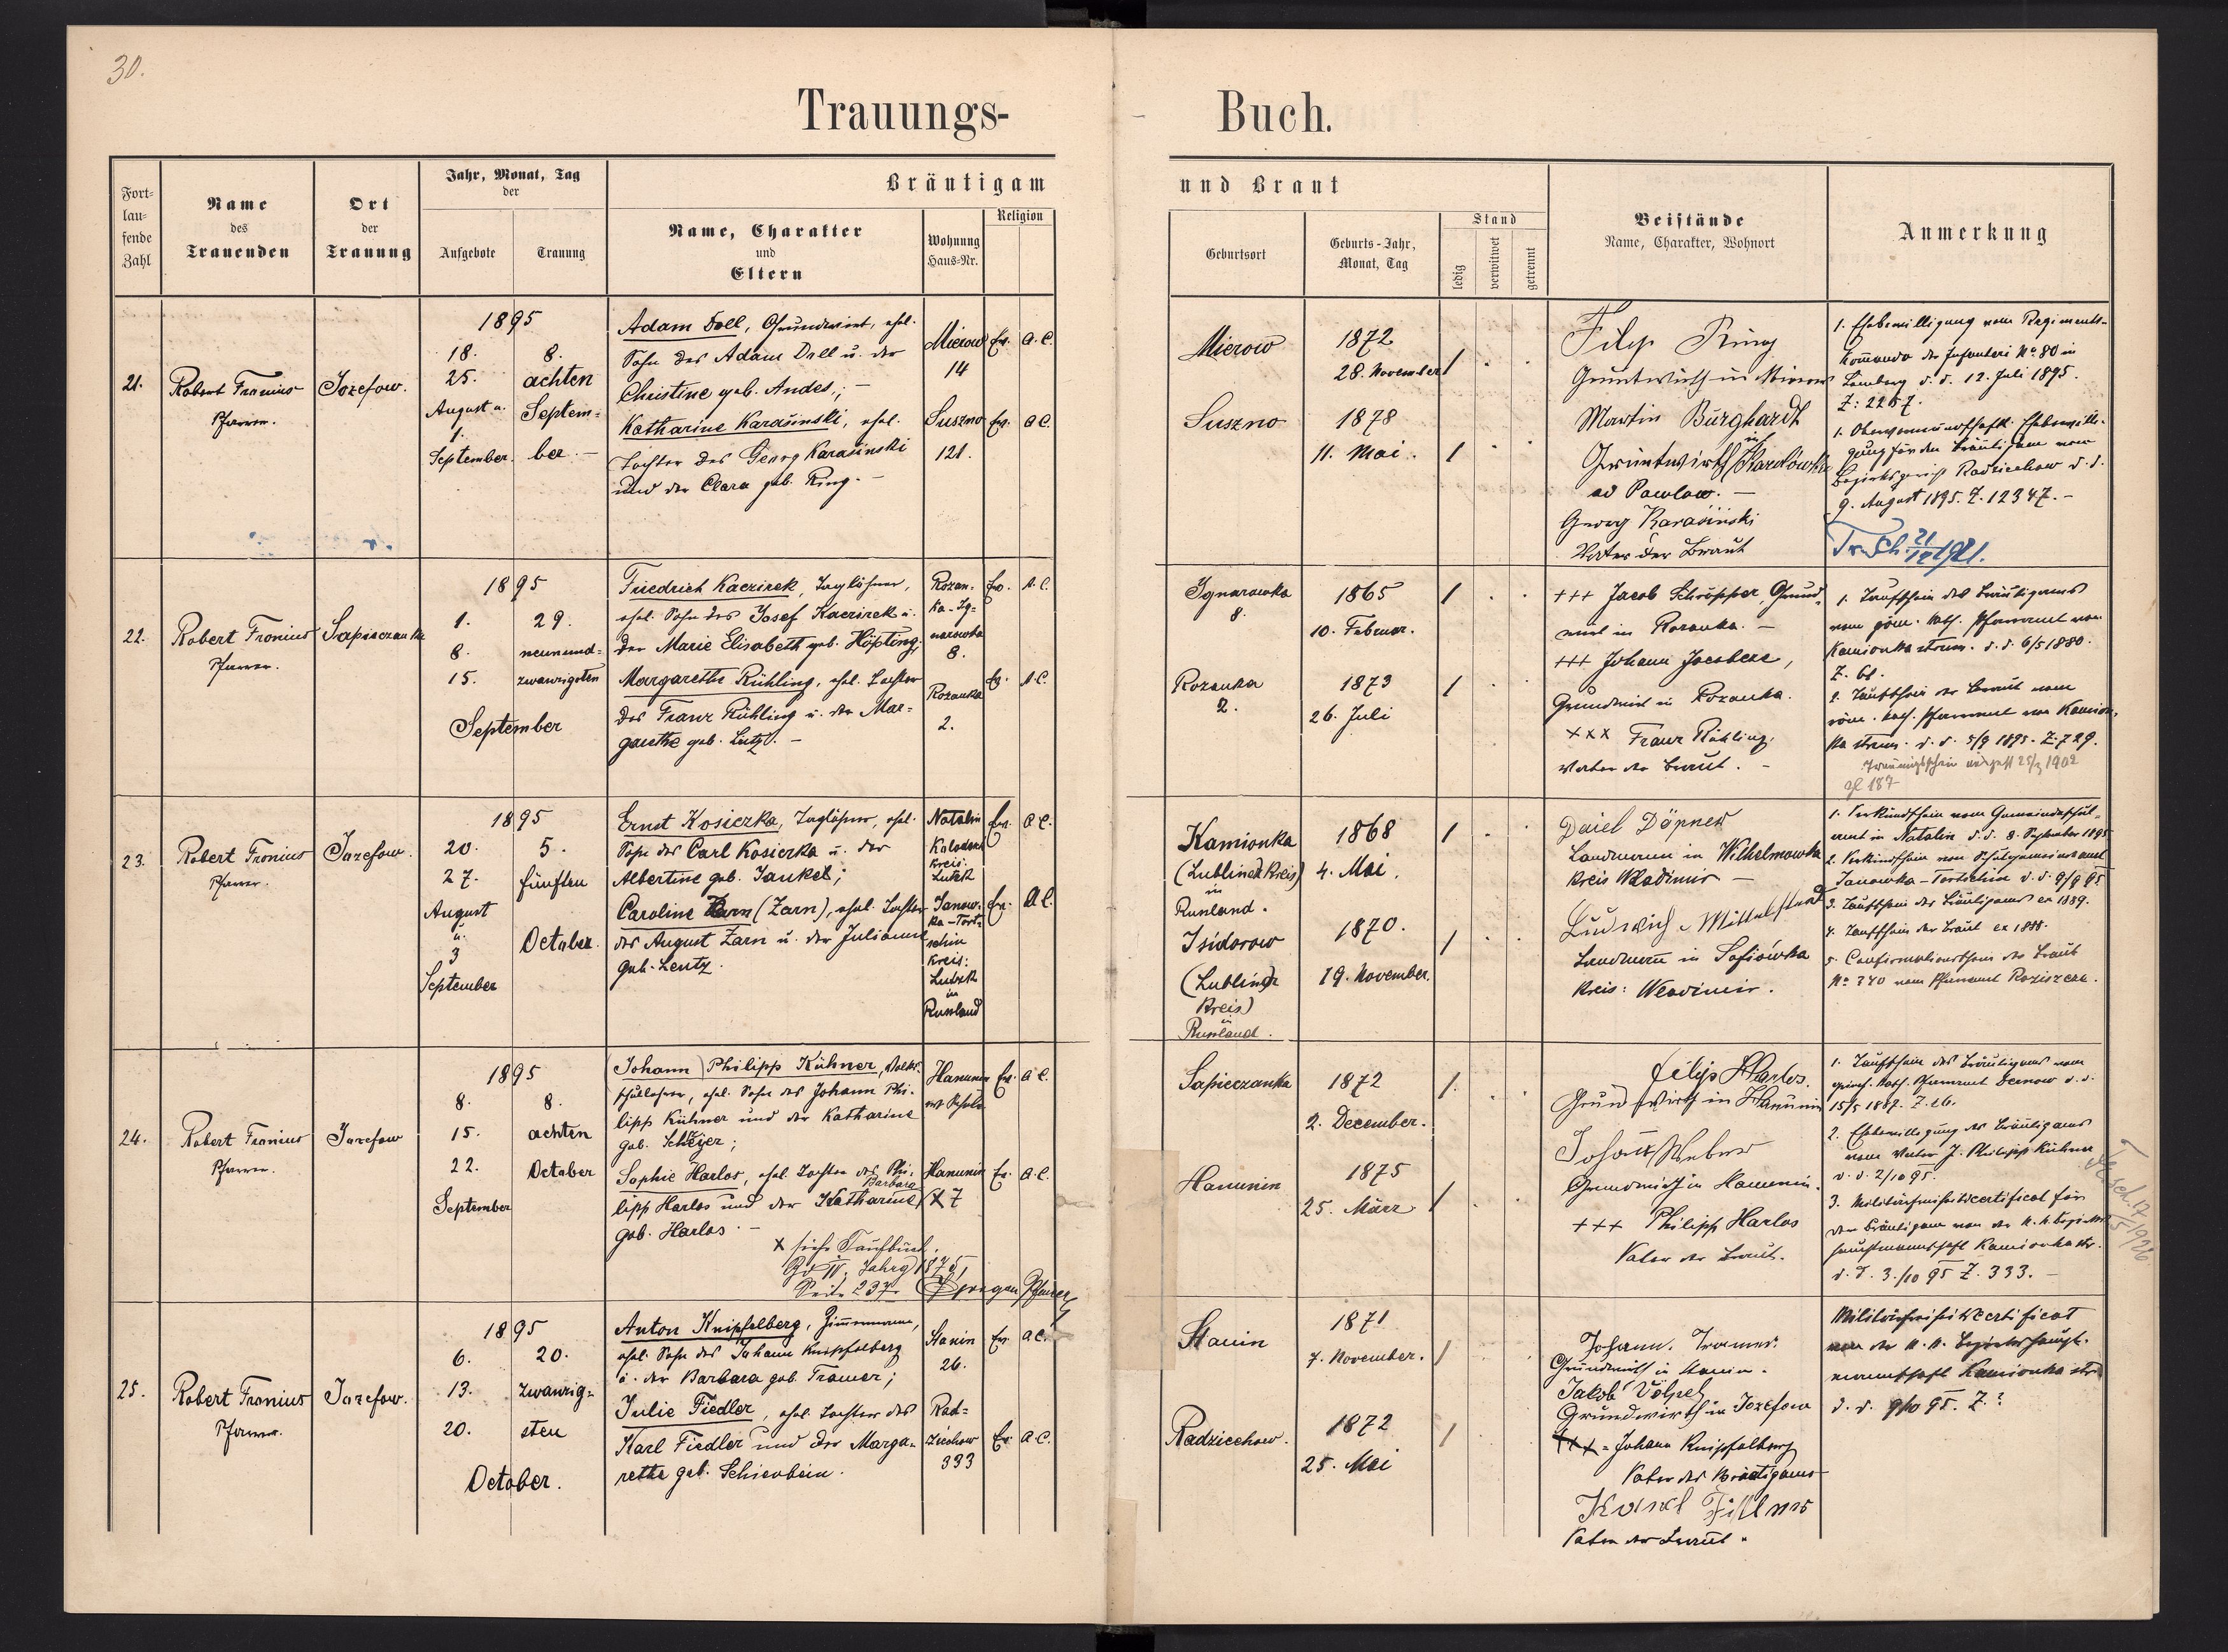 30.
Trauungs-
Buch.
Fort-
lau-
fende
Zahl
Name
des
Trauenden
Ort
der
Trauung
Jahr, Monat, Tag
der
Aufgebote
Trauung
Bräutigam
Name, Charakter
und
Eltern
Wohnung
Haus-Nr.
Religion
und Braut
Geburtsort
Geburts-Jahr,
Monat, Tag
Stand
ledig
verwitwet
getrennt
Beistände
Name, Charakter, Wohnort
Anmerkung
21.
Robert Fronius
Pfarrer.
Jozefow.
1895
18.
25.
August u.
1.
September.
8.
achten
Septem-
ber. —
Adam Doll, Grundwirt, ehel.
Sohn des Adam Doll u. der
Christine geb. Andes; —
Katharine Karasinski, ehel.
Tochter des Georg Karasinski
und der Clara geb. Ring. —
Mierow
14
Suszno
121.
Ev. A. C.
Ev. A C.
Mierow
1872
28. November
1
Suszno
1878
11. Mai.
1
Filip Ring
Gruntwirth in Mierow
Martin Burghardt
Gruntwirth in
ad Pawlow. —
Georg Karasinski
Vater der Braut
1. Ehebewilligung vom Regiments-
kommando der Infanterie No 80 in
Lemberg d. d. 12. Juli 1895.
1. Obervormundschaftl. Ehebewilli-
gung für den Bräutigam vom
Bezirksgericht Radziechow d. d.
9. August 1895. Z. 12347. —
22.
Robert Fronius
Pfarrer.
Sapieczanka
1895
1.
8.
15.
September
29.
neunund-
zwanzigsten
Friedrich Kaczirek, Taglöhner,
ehel. Sohn des Josef Kaczirek u.
der Marie Elisabeth geb. Höpting;
Margarethe Rühling, ehel. Tochter
des Franz Rühling u. der Mar-
garethe geb. Lutz. —
Rozan-
ka-Ig-
narowka
8.
Rozanka
2.
Ev. A. C.
Ev. A C.
Ignarowka
8.
1865
10. Februar.
1
Rozanka
2.
1873
26. Juli
1
+++ Jacob Schröpfer, Grund-
wirt in Rozanka. —
+++ Johann ,
Grundwirt in Rozanka.
××× Franz Rühling,
Vater der Braut. —
1. Taufschein des Bräutigams
vom röm. kath. Pfarramt von
Kamionka strum. d. d. 6/5 1880.
Z. 61.
2. Taufschein der Braut vom
röm. kath. Pfarramt von Kamion-
ka strum. d. d. 5/9 1895. Z. 729.
23.
Robert Fronius
Pfarrer.
Jozefow.
1895
20.
27.
August
u.
3
September
5.
fünften
October.
Ernst Kosiczka, Taglöhner, ehel.
Sohn des Carl Kosiczka u. der
Albertine geb. Jankel;
Caroline Zarn (Zarn), ehel. Tochter
des August Zarn u. der Julianne
geb. Lentz.
Natalin
Kreis:
Lutzk
Janow-
ka-Tort-
schin
Kreis:
Lutzk
in
Russland
Ev. A C.
Ev. A C.
Kamionka
(Lubliner Kreis)
in
Russland.
1868
4. Mai.
1
Isidorow
(Lubliner
Kreis)
in
Russland.
1870.
19. November.
1
Daiel Döpner
Landmann in Wilhelmowka
Kreis Wladimir —
Ludwich Mittelstedt
Landmann in Sofiówka
Kreis: Wladimir.
1. Verkündschein vom Gemeindeschul-
amt in Natalin d. d. 8. September 1895
2. Verkündschein vom
Janowka-Tortschin d. d. 9/9 95
3. Taufschein des Bräutigams ex 1889.
4. Taufschein der Braut ex 1888.
5. Confirmationsschein der Braut
No 340 vom Pfarramt Roziszcze.
24.
Robert Fronius
Pfarrer.
Jozefow
1895
8.
15.
22.
September
8.
achten
October
(Johann) Philipp Kühner, Volks-
schullehrer, ehel. Sohn des Johann Phi-
lipp Kühner und der Katharine
geb. Scheyer;
Sophie Harlos, ehel. Tochter des Phi-
Barbara
lipp Harlos und der Katharine X
geb. Harlos. —
X siehe Taufbuch,
Bd IV. Jahrg 1875,
Seite 237.
Pfarrer
Hanunin
Hanunin
7
Ev. A C.
Ev. A. C.
Sapieczanka
1872
2. December.
1.
Hanunin
1875
25. März
1
Filip Harlos.
Grundwirth in Hanunin
Johann Weber
Grundwirth in Hanunin.
+++ Philipp Harlos
Vater der Braut.
1. Taufschein des Bräutigams vom
griech. kath. Pfarramt Dernow d. d.
15/5 1887. Z. 26.
2. Ehebewilligung des Bräutigams
vom Vater J. Philipp Kühner
d. d. 2/10 95.
3. Militärfreiheitscertificat für
den Bräutigam von der k. k. Bezirks-
hauptmannschaft Kamionka str.
d. d. 3./10 95 Z. 333. —
25.
Robert Fronius
Pfarrer.
Jozefow.
1895
6.
13.
20.
October.
20.
zwanzig-
sten
Anton Knipfelberg, Zimmermann,
ehel. Sohn des Johann Knipfelberg
u. der Barbara geb. Tramer;
Julie Fiedler, ehel. Tochter des
Karl Fiedler und der Marga-
rethe geb. Schienbein.
Stanin
26.
Rad-
ziechow
333
Ev. A C.
Ev. A. C.
Stanin
1871
7. November.
1
Radziechow.
1872
25. Mai
1
Johann. Tramer.
Grundwirth in Stanin.
Jakob Völpel
Grundwirth in Jozefow
+++ = Johann Knipfelberg
Vater des Bräutigams
Karl
Vater der Braut.
Militärfreiheitscertificat
von der k. k. Bezirkshaupt-
mannschaft Kamionka str.
d. d. 9/10 95. Z.?